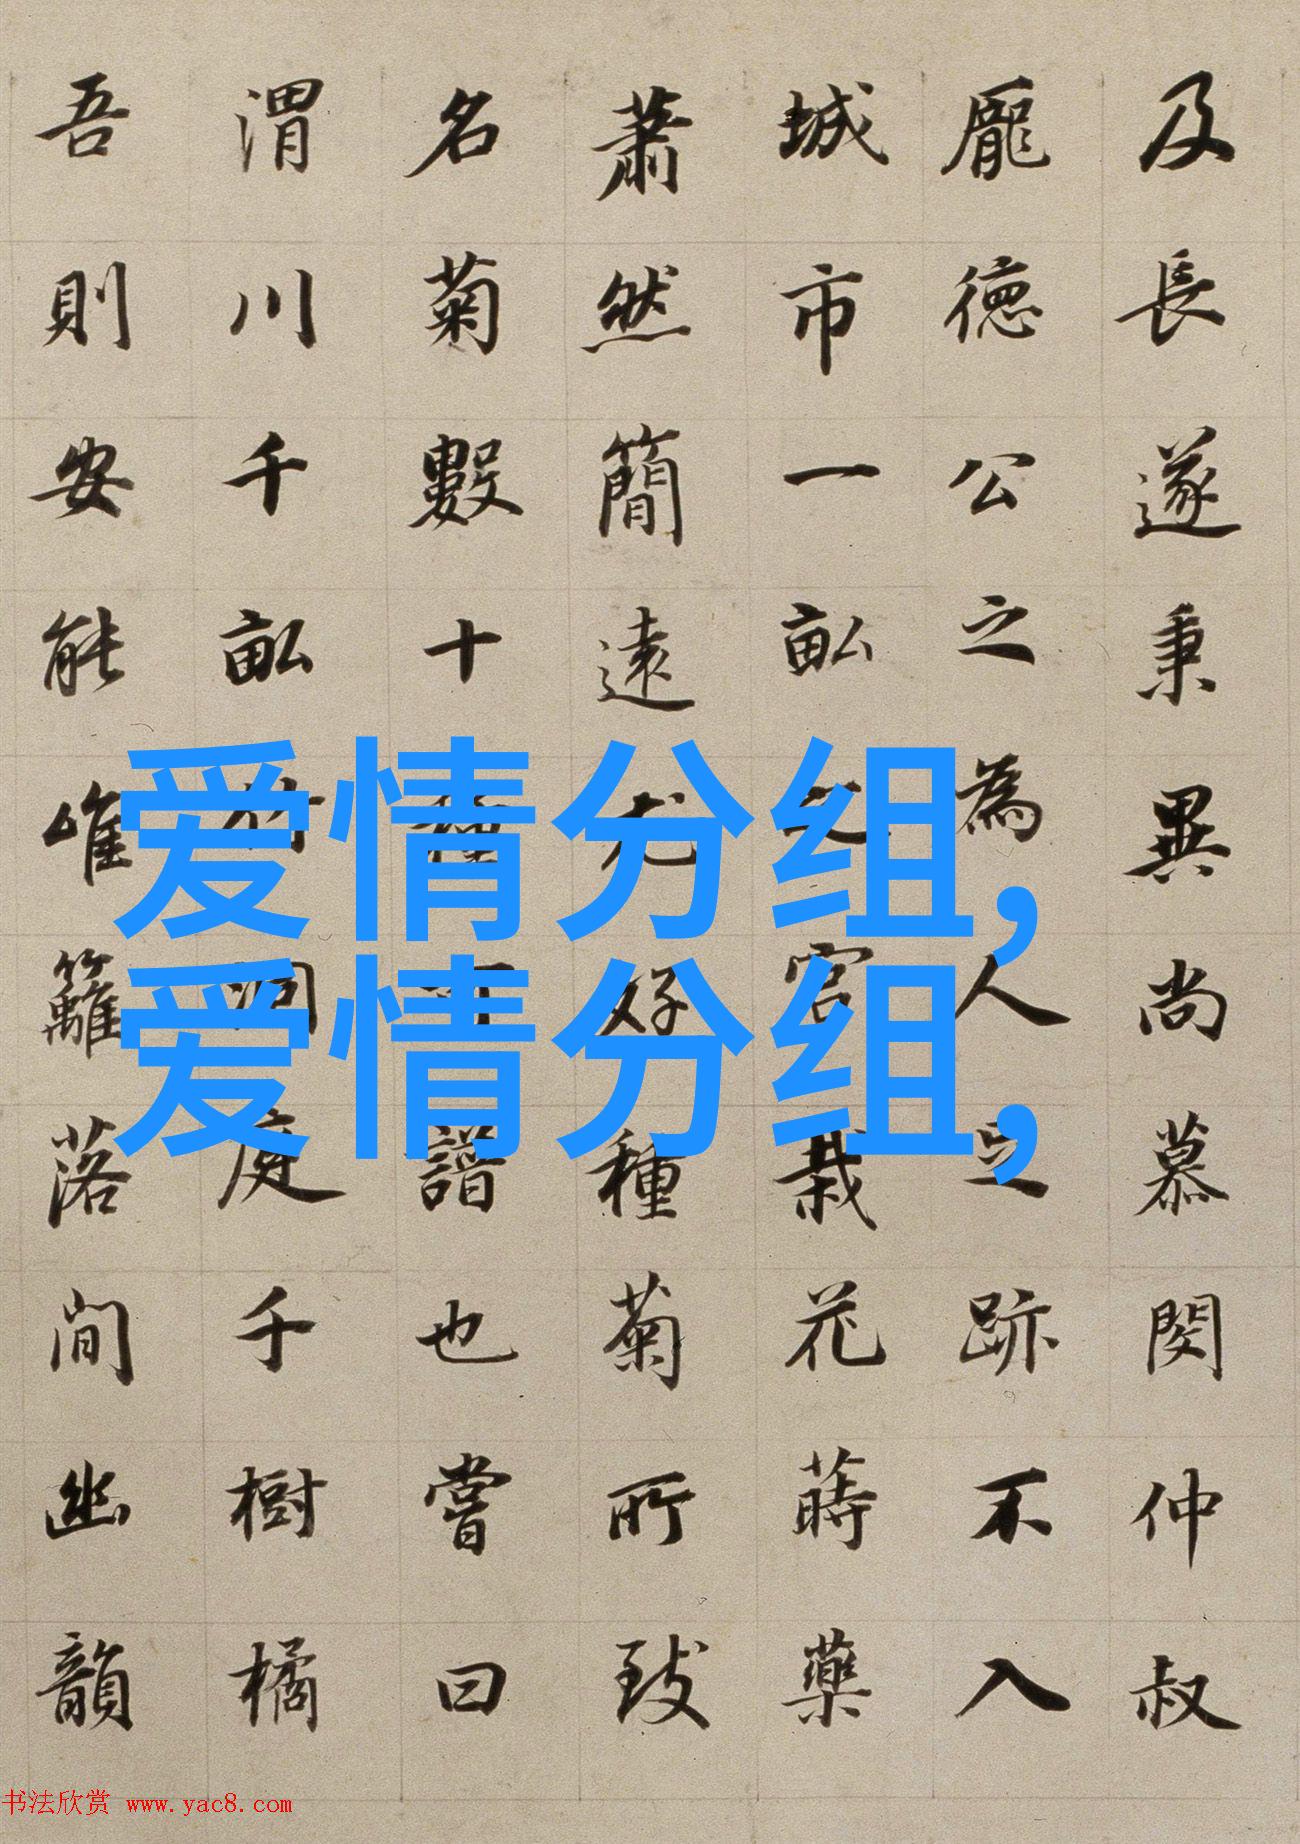 及長遂秉異尚慕閔仲叔
龐德公之為人足跡不入
城市一畝之宮栽花蒔藥
蕭然簡遠尤好種菊所致
名菊數十種可譜也嘗曰
渭川千畝竹洞庭千樹橘
吾則安能唯籬落間幽韻
爱情分组,
爱情分组,
书法欣赏 www.yac8.com